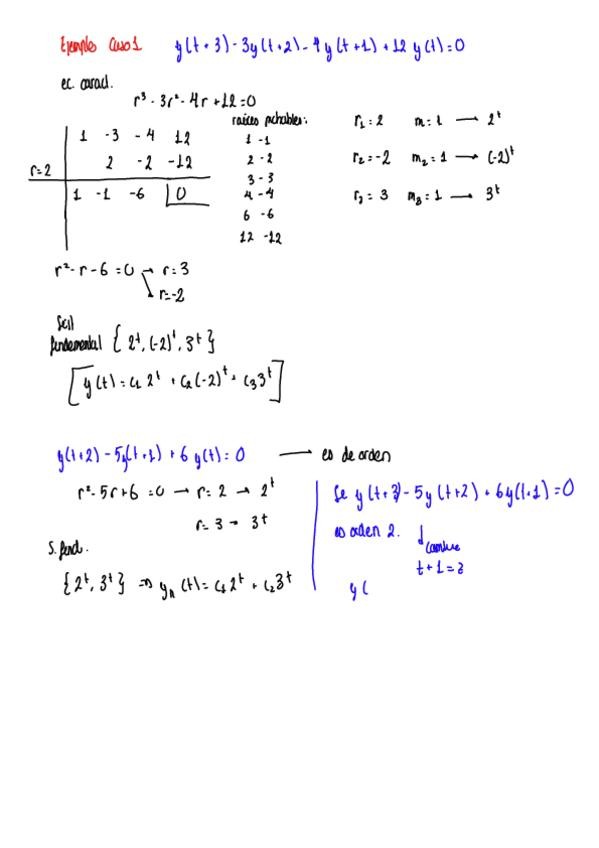 Ejemplo Caso 1 y(t+3) - 3y(t+2) - 4y(t+1) + 12 y(t) = 0
ec. caract.
r³ - 3r² - 4r + 12 = 0
raíces probables:
1 -3 -4 12
2 -2 -12
r=2
1 -1 -6 0
1 -1
2 -2
3 -3
4 -4
6 -6
12 -12
r₁ = 2 m = 1 → 2^t
r₂ = -2 m₂ = 1 → (-2)^t
r₃ = 3 m₃ = 1 → 3^t
r² - r - 6 = 0 → r = 3
r = -2
fundamental { 2^t, (-2)^t, 3^t }
[ y(t) = c₁ 2^t + c₂ (-2)^t + c₃ 3^t ]
y(t+2) - 5y(t+1) + 6 y(t) = 0 → es de orden
r² - 5r + 6 = 0 → r = 2 → 2^t
r = 3 → 3^t
S. fund.
{ 2^t, 3^t } ⇒ y_h (t) = c₁ 2^t + c₂ 3^t
Se y(t+3) - 5y(t+2) + 6y(t+1) = 0
es orden 2. ↓
t + 1 = z
y (